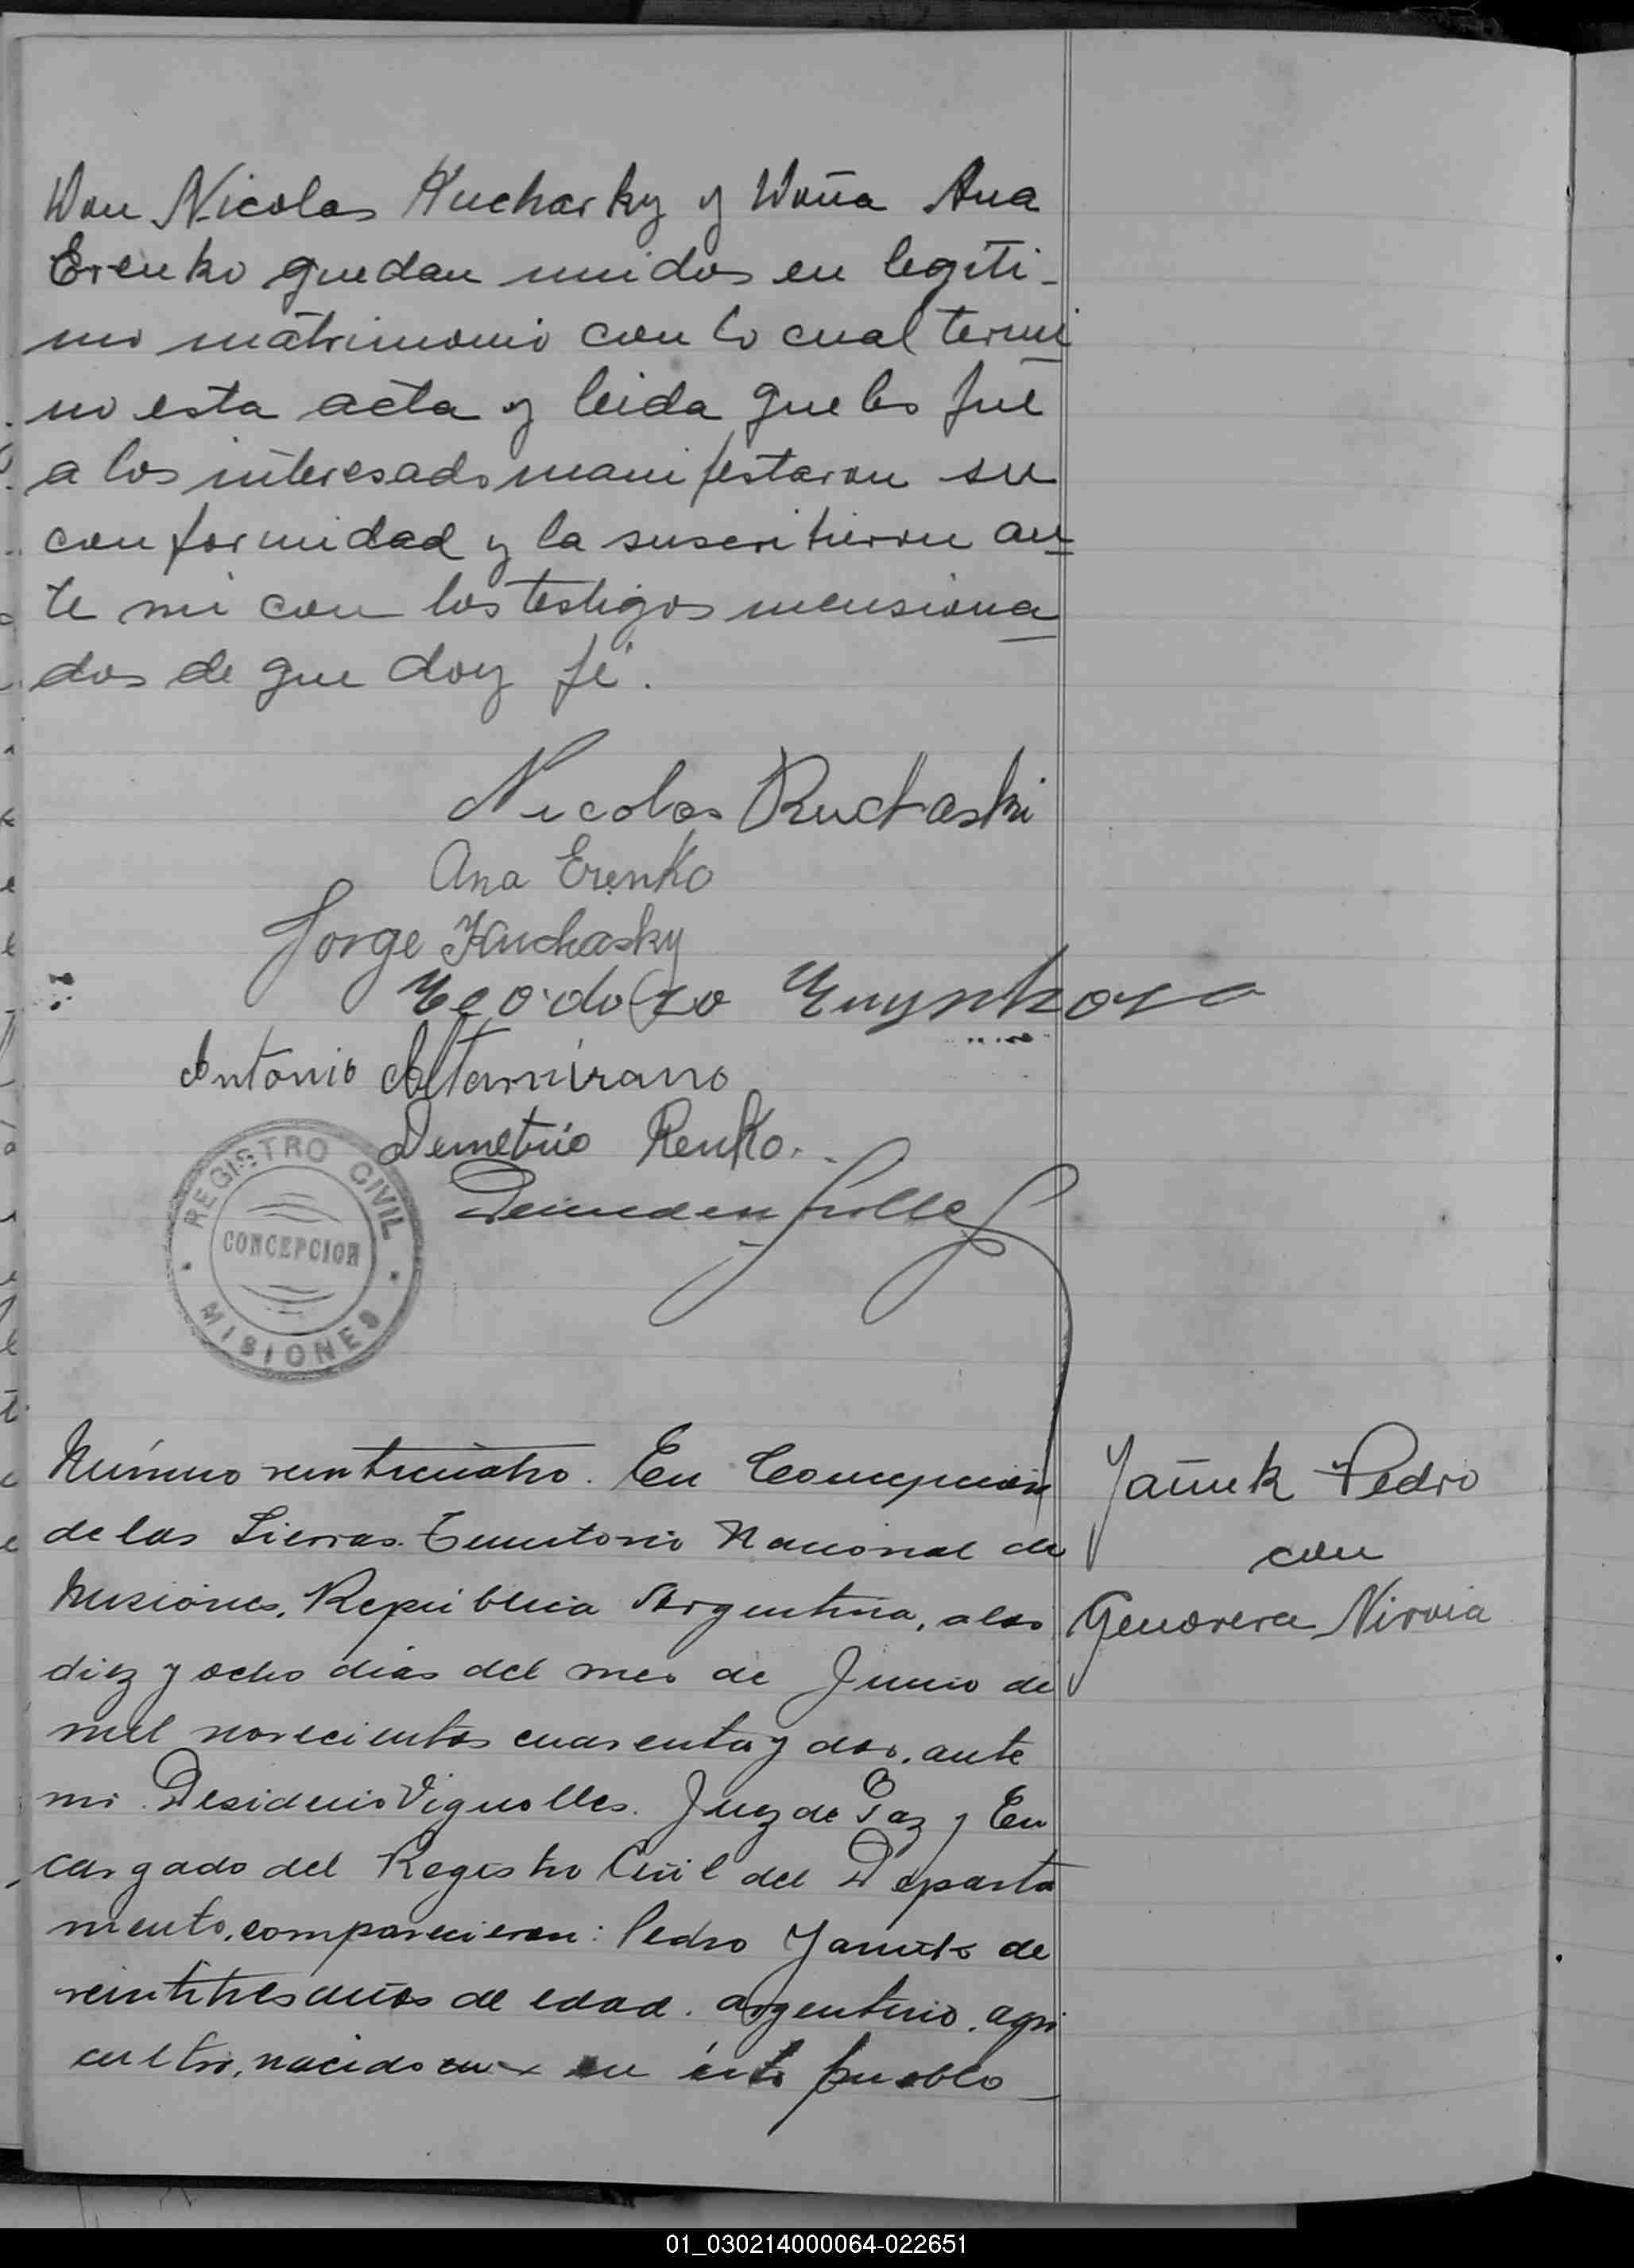 Don Nicolas Kucharky y Doña Ana
Erenko quedan unidos en legiti-
mo matrimonio con lo cual termi
no esta acta y leida que les fué
a los interesado manifestaron su
conformidad y la suscritieron an
te mi con los testigos mensiona
dos de que doy fé.
Nicolas Ruchaski
Ana Erenko
Jorge Kuchasky
Teodoro
Antonio Altamirano
Demetrio Renko.
REGISTRO CIVIL
CONCEPCION
MISIONES
Número veinticuatro. En Concepcion
de las Sierras. Territorio Nacional de
Misiones, República Argentina, a los
diez y ocho dias del mes de Junio de
mil novecientos cuarenta y dos, ante
mi Desiderio Vignolles. Juez de Paz y En
cargado del Registro Civil del Departa
mento, comparecieron: Pedro Yanuk de
veintitres años de edad. argentino, agri
cultor, nacido en en este pueblo
Yanuk Pedro
con
Genoveva Nirvia
01_030214000064-022651